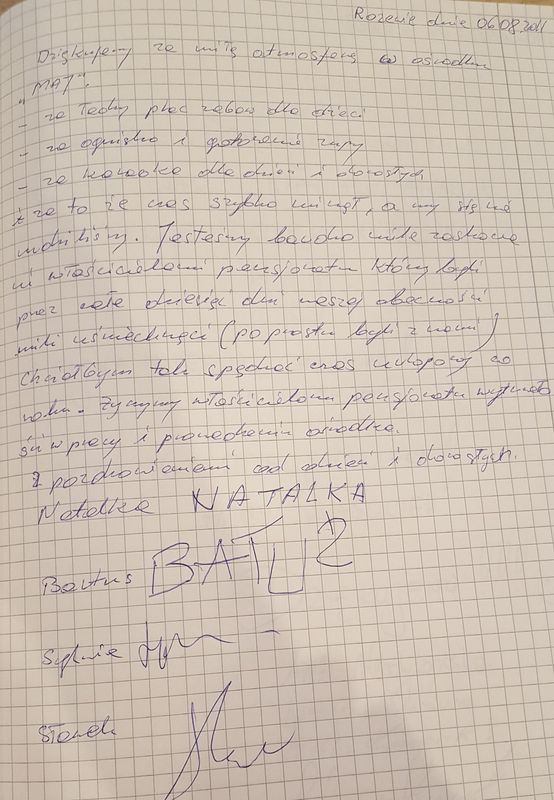 Rozewie dnia 06.08.2011
Dziękujemy za miłą atmosferę w ośrodku
"MAT".
- za ładny plac zabaw dla dzieci
- za ognisko i gotowanie zupy
- za karaoke dla dzieci i dorosłych
i za to że czas szybko minął, a my się nie
nudziliśmy. Jesteśmy bardzo mile zaskocze
ni właścicielami pensjonatu którzy byli
przez całe dziesięć dni naszej obecności
mili uśmiechnięci (po prostu byli z nami)
Chciałbym tak spędzać czas urlopowy co
roku. Życzymy właścicielom pensjonatu wytrwało
ści w pracy i prowadzeniu ośrodka.
Z pozdrowieniami od dzieci i dorosłych.
Natalka NATALKA
Bartuś BATUŚ
Sylwia
Sławek